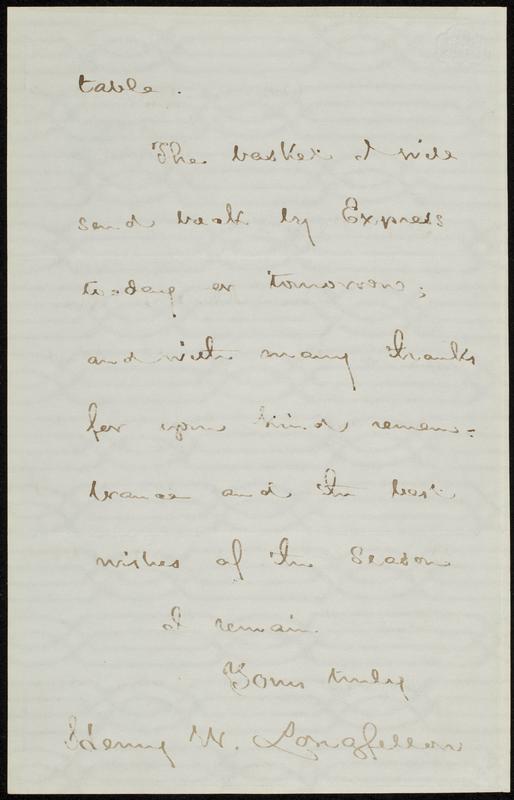 table.
The basket I will
send back by Express
to-day or tomorrow;
and with many thanks
for your kind remem=
brance and the best
wishes of the Season
I remain
Yours truly
Henry W. Longfellow